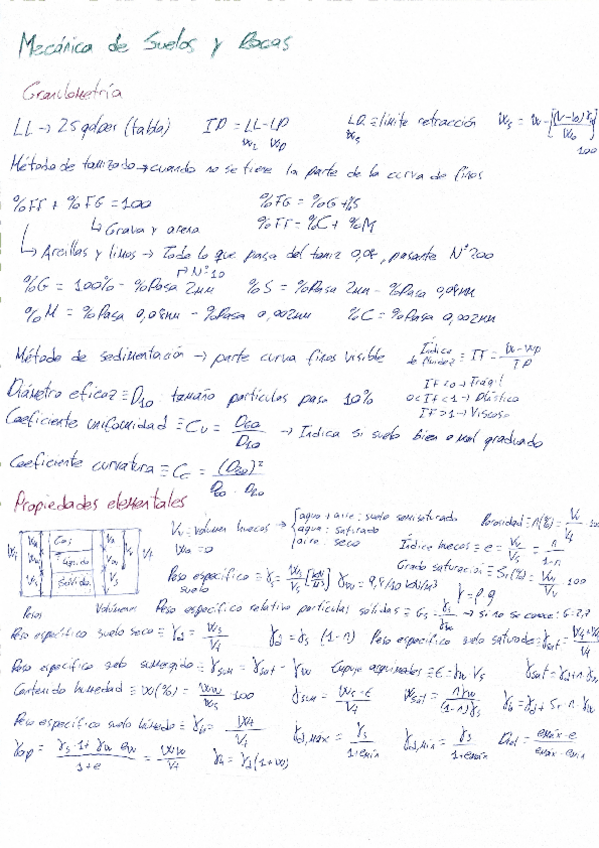 Mecánica de Suelos y Rocas
Granulometría
LL → 25 golpes (tabla) IP = LL - LP LR ≡ límite retracción
Método de tamizado → cuando no se tiene la parte de la curva de finos
%FF + %FG = 100 %FG = %G + %S
↳ Grava y arena %FF = %C + %M
↳ Arcillas y limos → Todo lo que pasa del tamiz 0,08, pasante Nº200
Nº10
%G = 100% - %Pasa 2mm %S = %Pasa 2mm - %Pasa 0,08mm
%M = %Pasa 0,08mm - %Pasa 0,002mm %C = %Pasa 0,002mm
Método de sedimentación → parte curva finos visible Índice de fluidez ≡ IF = (w - wp)/IP
IF < 0 → Frágil
Diámetro eficaz ≡ D10 tamaño partículas pasa 10% 0 < IF < 1 → Plástico
IF > 1 → Viscoso
Coeficiente uniformidad ≡ Cu = D60/D10 → Indica si suelo bien o mal graduado
Coeficiente curvatura ≡ Cc = (D30)²/(D60 · D10)
Propiedades elementales
Vv ≡ volumen huecos → { agua + aire: suelo semisaturado Porosidad ≡ n(%) = Vv/Vt · 100
agua: saturado
aire: seco
Wa = 0 Índice huecos ≡ e = Vv/Vs = n/(1-n)
Gas
Líquido
Sólido
Grado saturación ≡ Sr(%) = Vw/Vv · 100
Peso específico suelo ≡ γ = Wt/Vt [kN/m³] γw = 9,8/10 kN/m³
γ = ρ·g
Pesos Volúmenes Peso específico relativo partículas sólidas ≡ Gs = γs/γw → si no se conoce: G = 2,7
Peso específico suelo seco ≡ γd = Ws/Vt γd = γs (1-n) Peso específico suelo saturado ≡ γsat
Peso específico suelo sumergido ≡ γsum = γsat - γw Empuje arquímedes ≡ E = γw Vs γsat = γd + n·γw
Contenido humedad ≡ w(%) = Ww/Ws · 100 γsum = (Ws - E)/Vt wsat = n γw/((1-n)γs) γh = γd + Sr · n · γw
Peso específico suelo húmedo ≡ γh = Wt/Vt γd,máx = γs/(1+emín) γd,mín = γs/(1+emáx)
γap γh = γd (1+w)